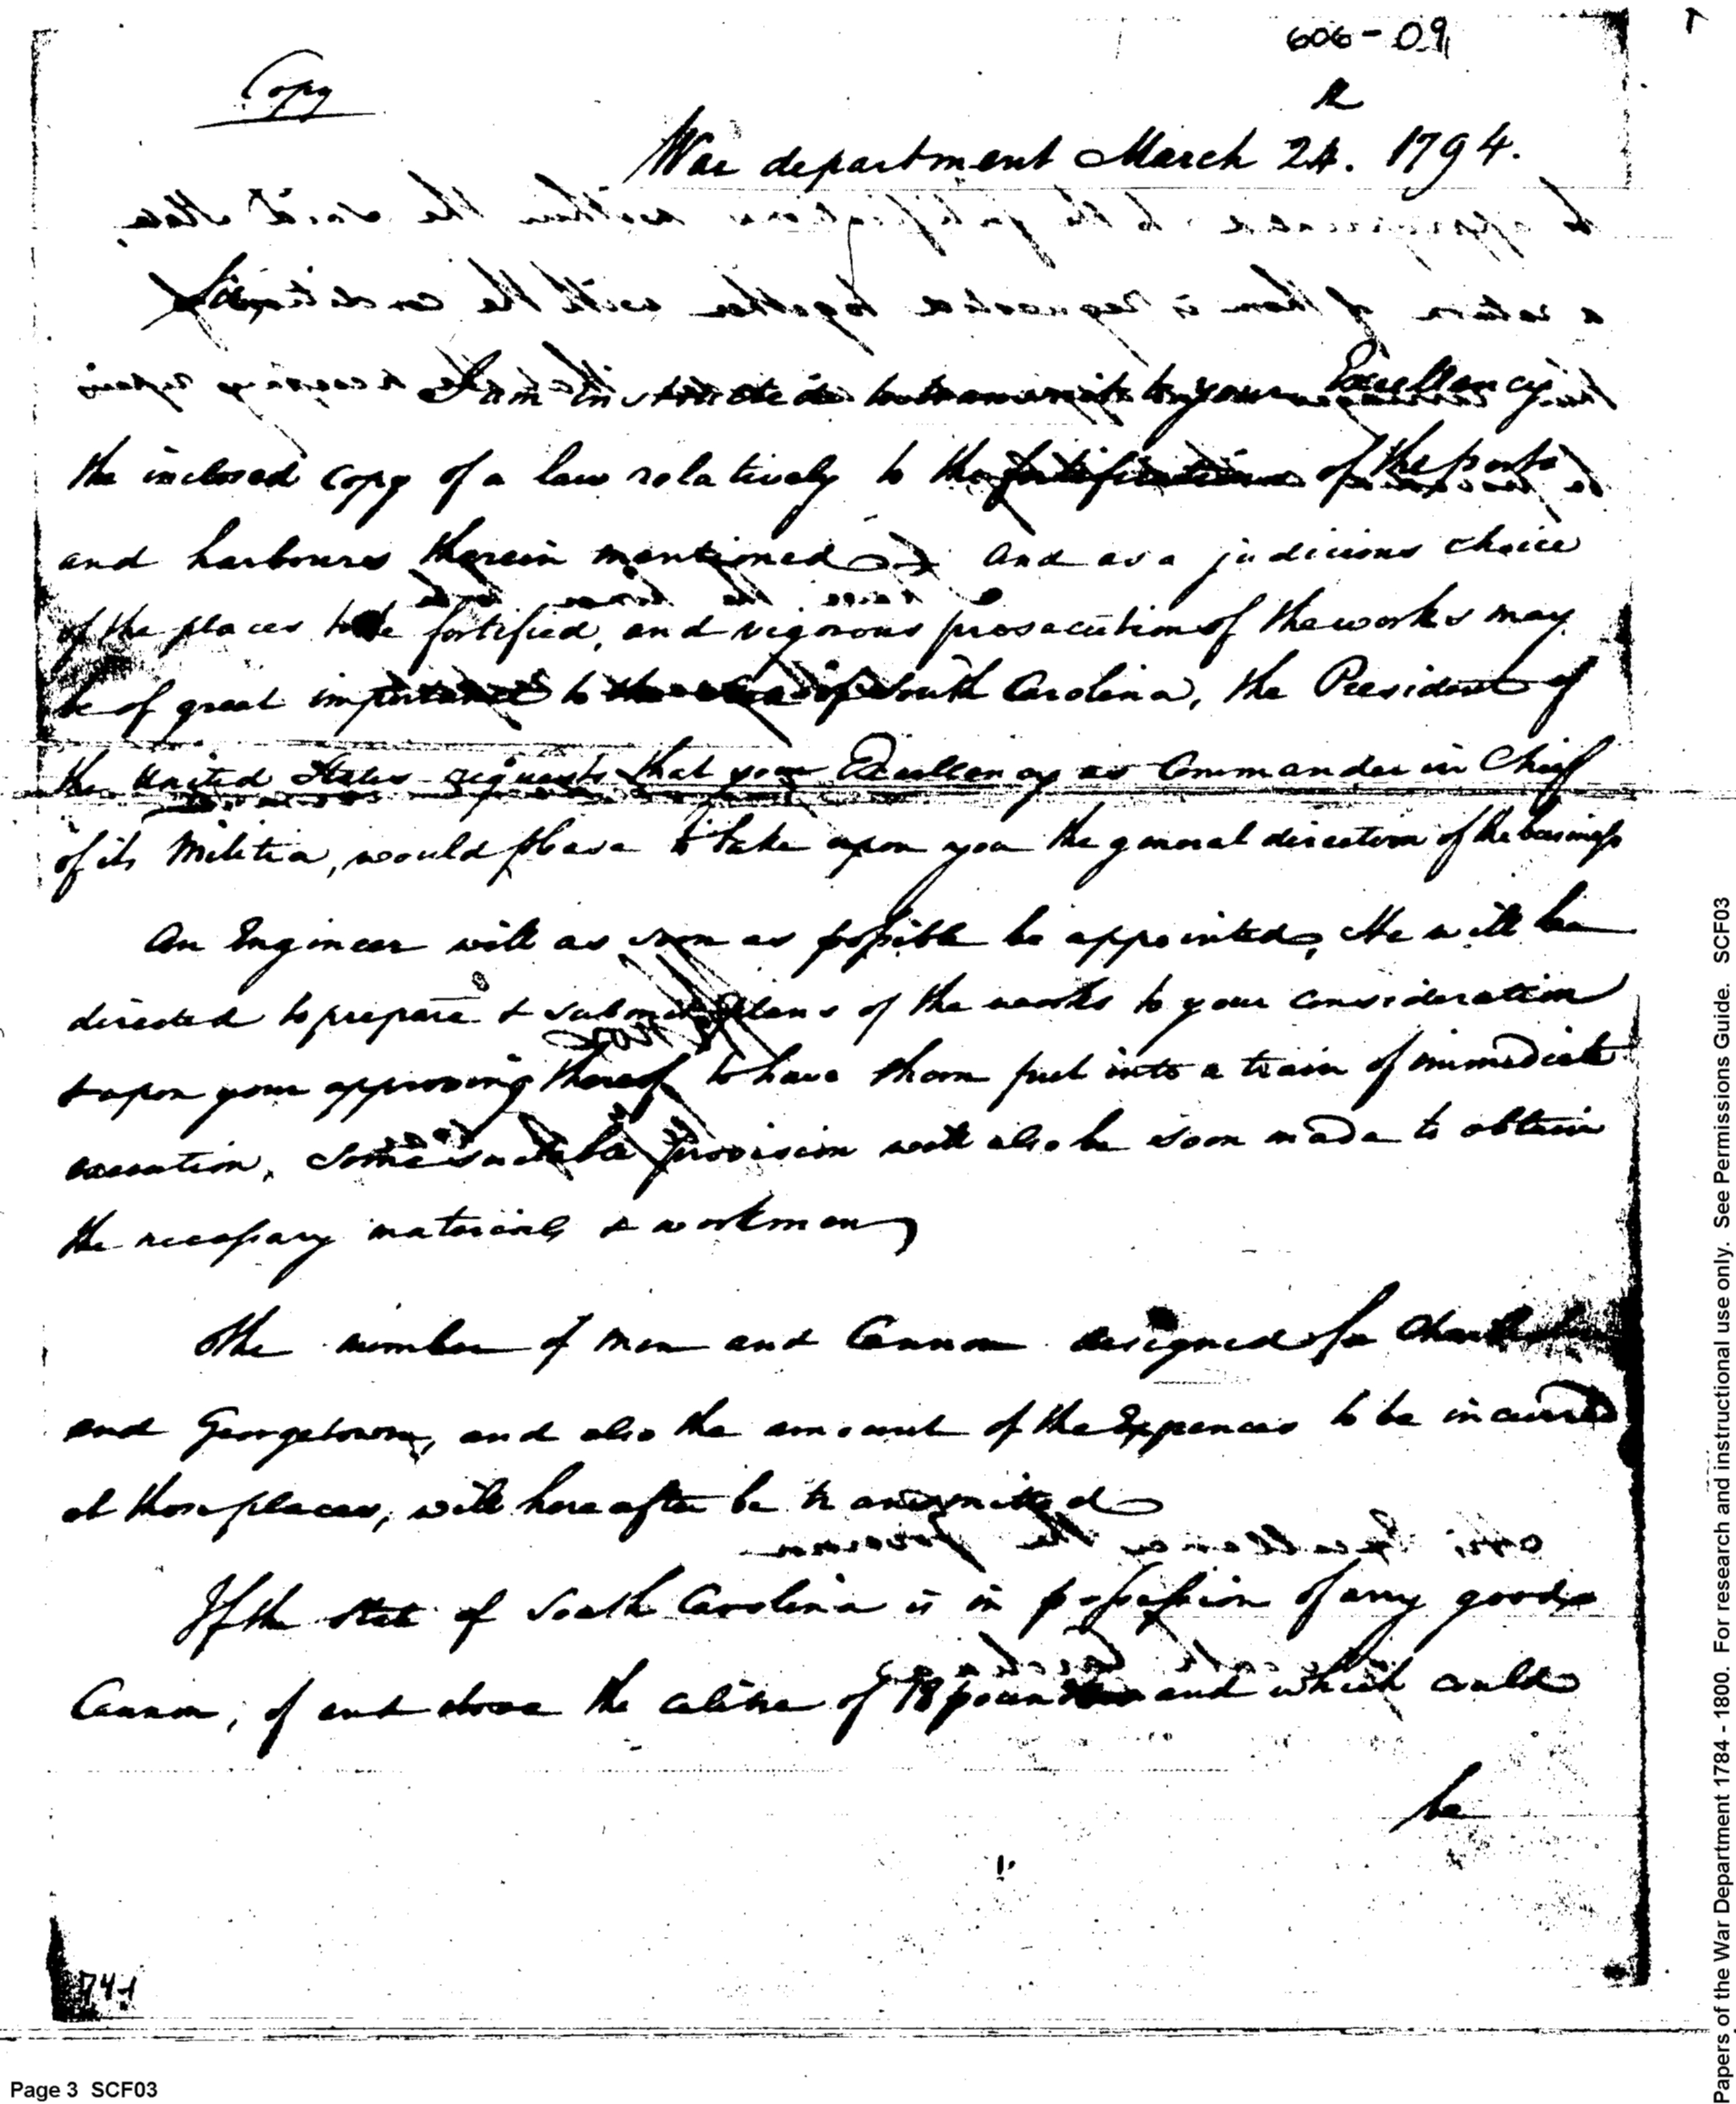 606-09
Copy
War department March 24. 1794.
Sir,
I am instructed to transmit to your Excellency
the inclosed copy of a law relatively to the fortifications of the ports
and harbours therein mentioned And as a judicious choice
of the places to be fortified, and vigorous prosecution of the works may
be of great importance to the state of South Carolina, the President of
the United States requests that your Excellency as Commander in Chief
of its Militia, would please to take upon you the general direction of the business
An Engineer will as soon as possible be appointed, He will be
directed to prepare & submit plans of the works to your consideration
& upon your approving thereof to have them put into a train of immediate
execution, Some suitable provision will also be soon made to obtain
the necessary materials & workmen,
The number of men and Cannon designed for Charleston
and Georgetown, and also the amount of the Expences to be incurred
at those places, will hereafter be transmitted
If the State of South Carolina is in possession of any good
Cannon, of and above the calibre of 18 pounders and which could
be
741
Page 3 SCF03
Papers of the War Department 1784 - 1800. For research and instructional use only. See Permissions Guide. SCF03